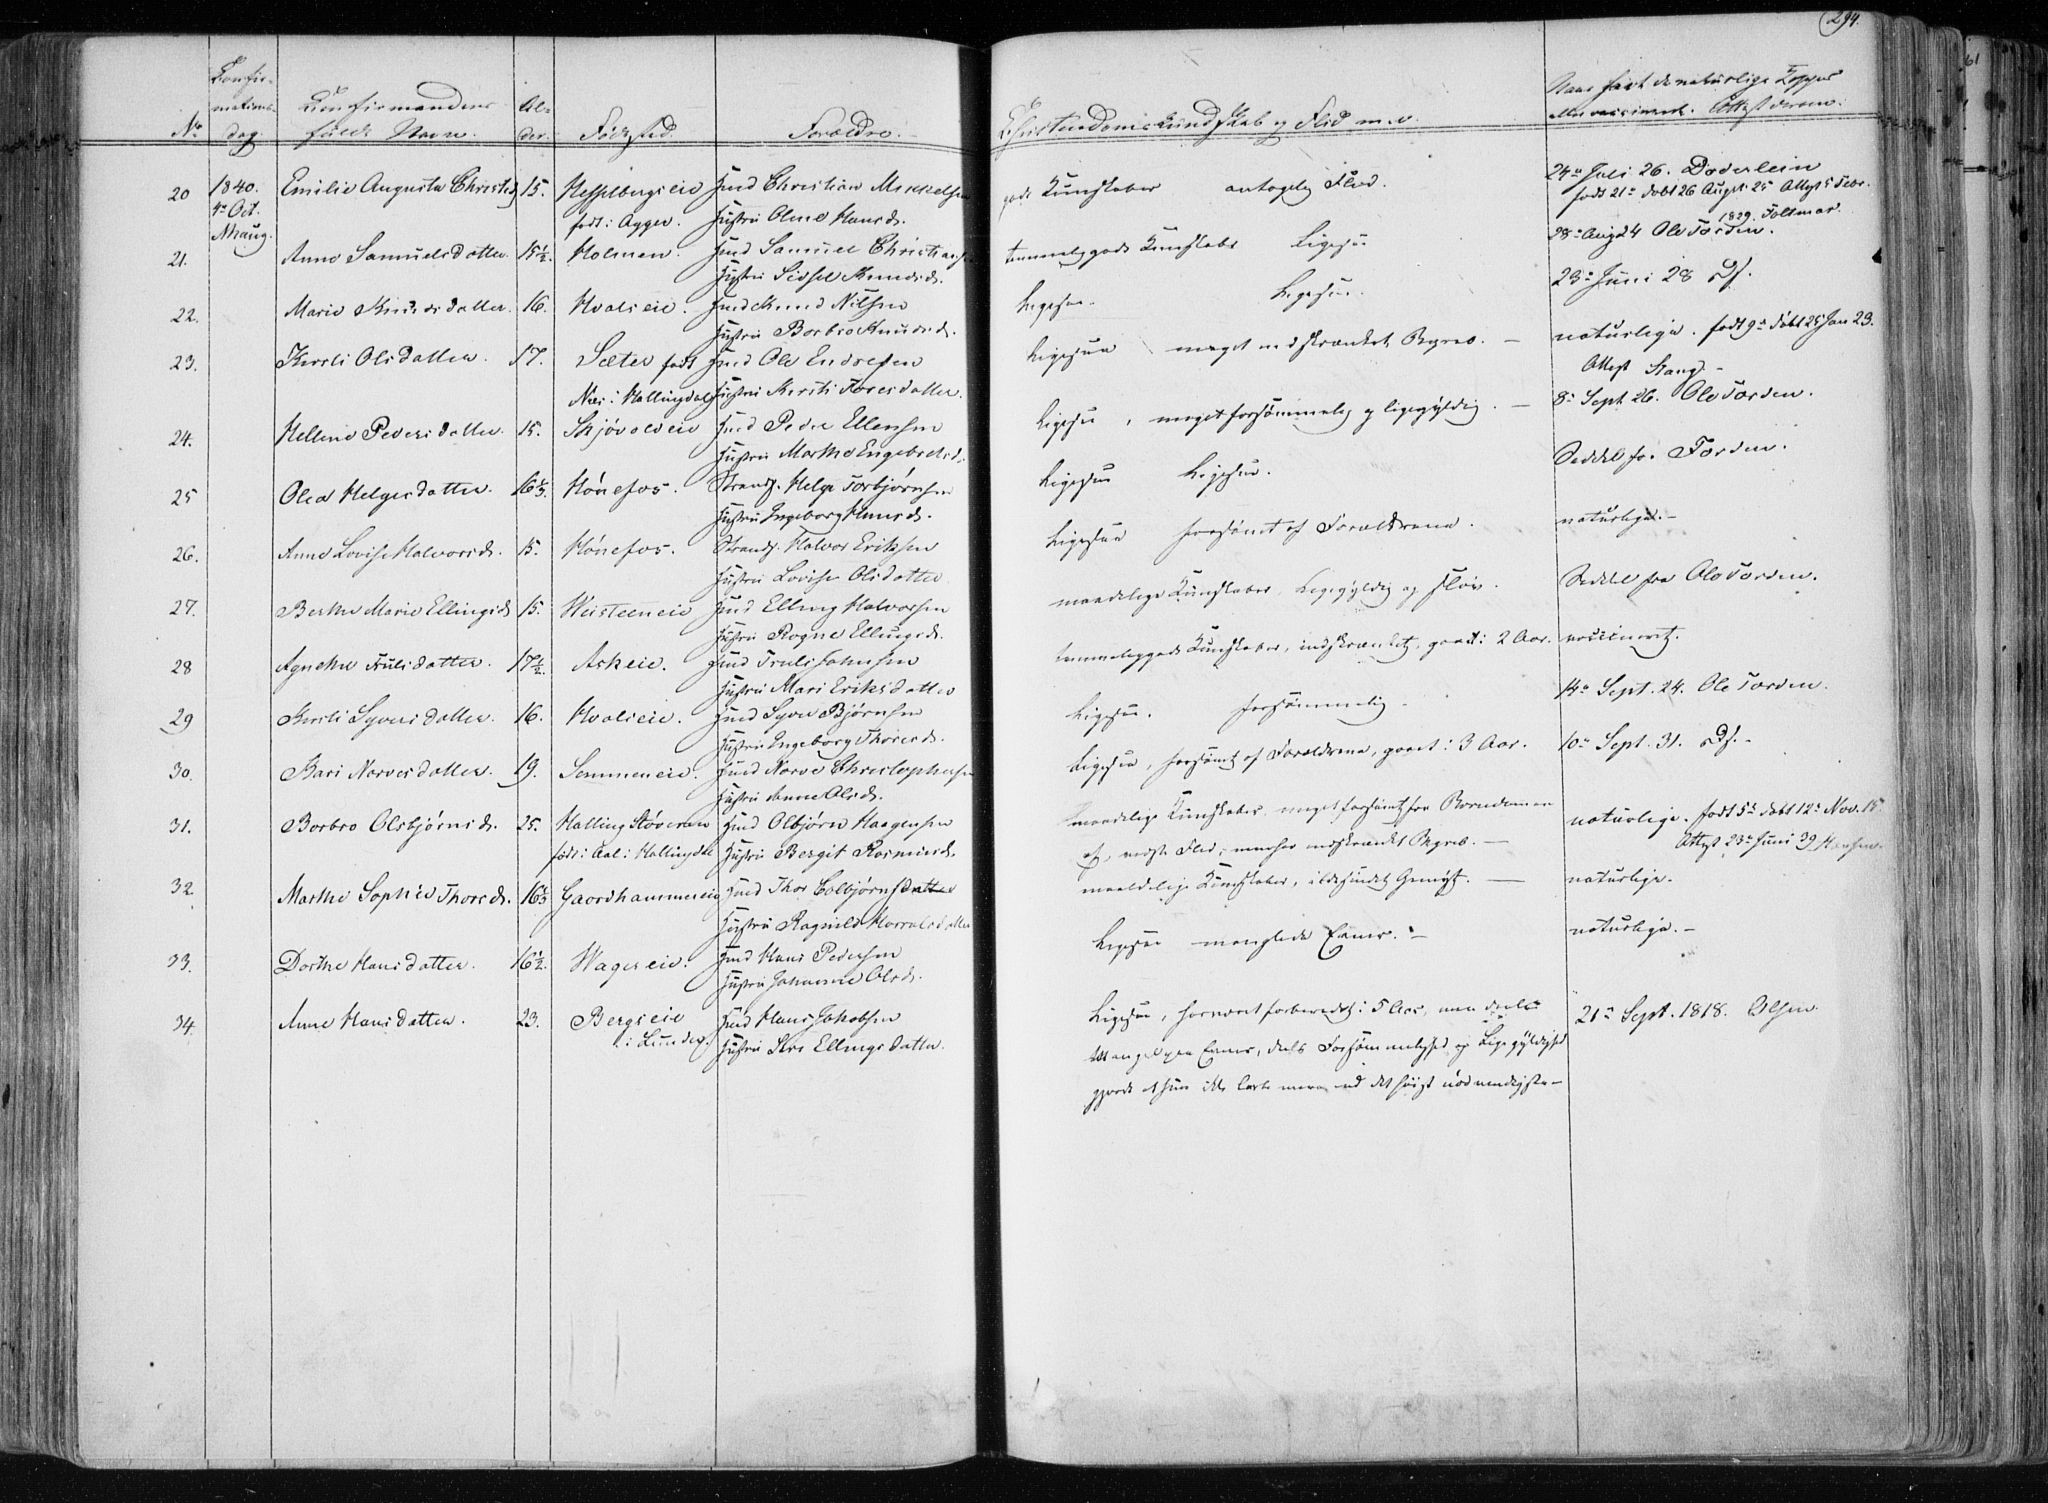 294.
No
Confir-
mations-
dag.
Confirmandens
fulde Navn.
Al-
der.
Födested.
Forældre.
Christendomskundskab og Flid m. v.
Naar havt de naturlige Kopper
eller vaccineret. Attest derom.
20 1840. Emilie Augusta Christ 15. Hesselbergseie Huusmd Christian Mikkelsen gode Kundskaber antagelig Flid. 24de Juli 26. Döderlein
4de Oct. födt i Agger. Hustru Olene Hansd. födt 21de döbt 26 August 25 Attest 5 Febr.
Nhaug. 1829. Foltmar.
21. Anne Samuelsdatter. 15½. Holmen. Huusmd Samuel Christiansen temmelig gode Kundskaber Ligesaa 28de Aug 24 Ole Torsden.
Hustru Sidsel Knudsd.
22. Marie Knudsdatter. 16. Hvalseie. Huusmd Knud Nilsen Ligesaa. Ligesaa. 23de Juni 28 Ds.
Hustru Borbro Knudsd.
23. Kersti Olsdatter. 17. Sæter födt Huusmd Ole Endresen Ligesaa meget indskrænket Begreb. — naturlige. födt 9de döbt 25 Jan 23.
Næs i Hallingdal Hustru Kersti Toresdatter. Attest Stang. -
24. Hellene Pedersdatter. 15. Skjövoldeie Huusmd Peder Ellensen Ligesaa, meget forsömmelig og ligegyldig. — 8de Sept 26. Ole Torsden.
Hustru Marthe Engebretsd.
25 Olea Helgesdatter. 16½. Hönefos. Strands. Helge Torbjörnsen Ligesaa Ligesaa. Seddel fra Torsden.
Hustru Ingeborg Hansd.
26. Anne Lovise Halvorsd. 15. Hönefos. Strands. Halvor Eriksen Ligesaa forsömt af Forældrene. naturlige. -
Hustru Lovise Olsdatter
27. Berthe Marie Ellingsd 15. Veisteeneie Huusmd Elling Halvorsen maadelige Kundskaber, ligegyldig og slöv. Seddel fra Ole Torsden.
Hustru Rogne Ellingsd.
28 Agnethe Trulsdatter. 17½. Askeie. Huusmd Truls Johnsen temmelig gode Kundskaber, indskrænket, gaaet i 2 Aar. vaccineret.
Hustru Mari Eriksdatter
29 Kersti Syversdatter. 16. Hvalseie. Huusmd Syver Björnsen Ligesaa. forsömmelig - 14de Sept. 24. Ole Torsden.
Hustru Ingeborg Thoresd.
30. Kari Narvesdatter. 19. Semmeneie. Huusmd Narve Christophersen Ligesaa, forsömt af Forældrene, gaaet i 3 Aar. 10de Sept. 31. Ds. -
Hustru Anne Olsd.
31. Borbro Olsbjörnsd. 25. Halling Stöveren Huusmd Olbjörn Haagensen maadelige Kundskaber, meget forsömt fra Barndommen naturlige. födt 5te döbt 12te Nov. 15.
födt i Aal i Hallingdal Hustru Bergit Rasmusd. af, megen Flid, meget indskrænket Begreb. — Attest 23de Juni 39 Hansen.
32. Marthe Sophie Thoresd. 16½ Gaardhammereie Huusmd Thor Colbjörnsdatter maadelige Kundskaber, ildesindet Gemyt. — naturlige.
Hustru Ragnild Harraldsdatter
33. Dorthe Hansdatter. 16½. Wagereie. Huusmd Hans Pedersen Ligesaa manglede Evner. - naturlige. -
Hustru Johanne Olsd.
34. Anne Hansdatter. 23. Bergseie Huusmd Hans Jakobsen Ligesaa, har været forberedet i 5 Aar, men deels 21de Sept. 1818. Olsen.
i Lunder. Hustru Siri Ellingsdatter. Mangel paa Evner, deels Forsömmelighed og Ligegyldighed
gjorde at hun ikke lærte mere end det höist nödvendigste —